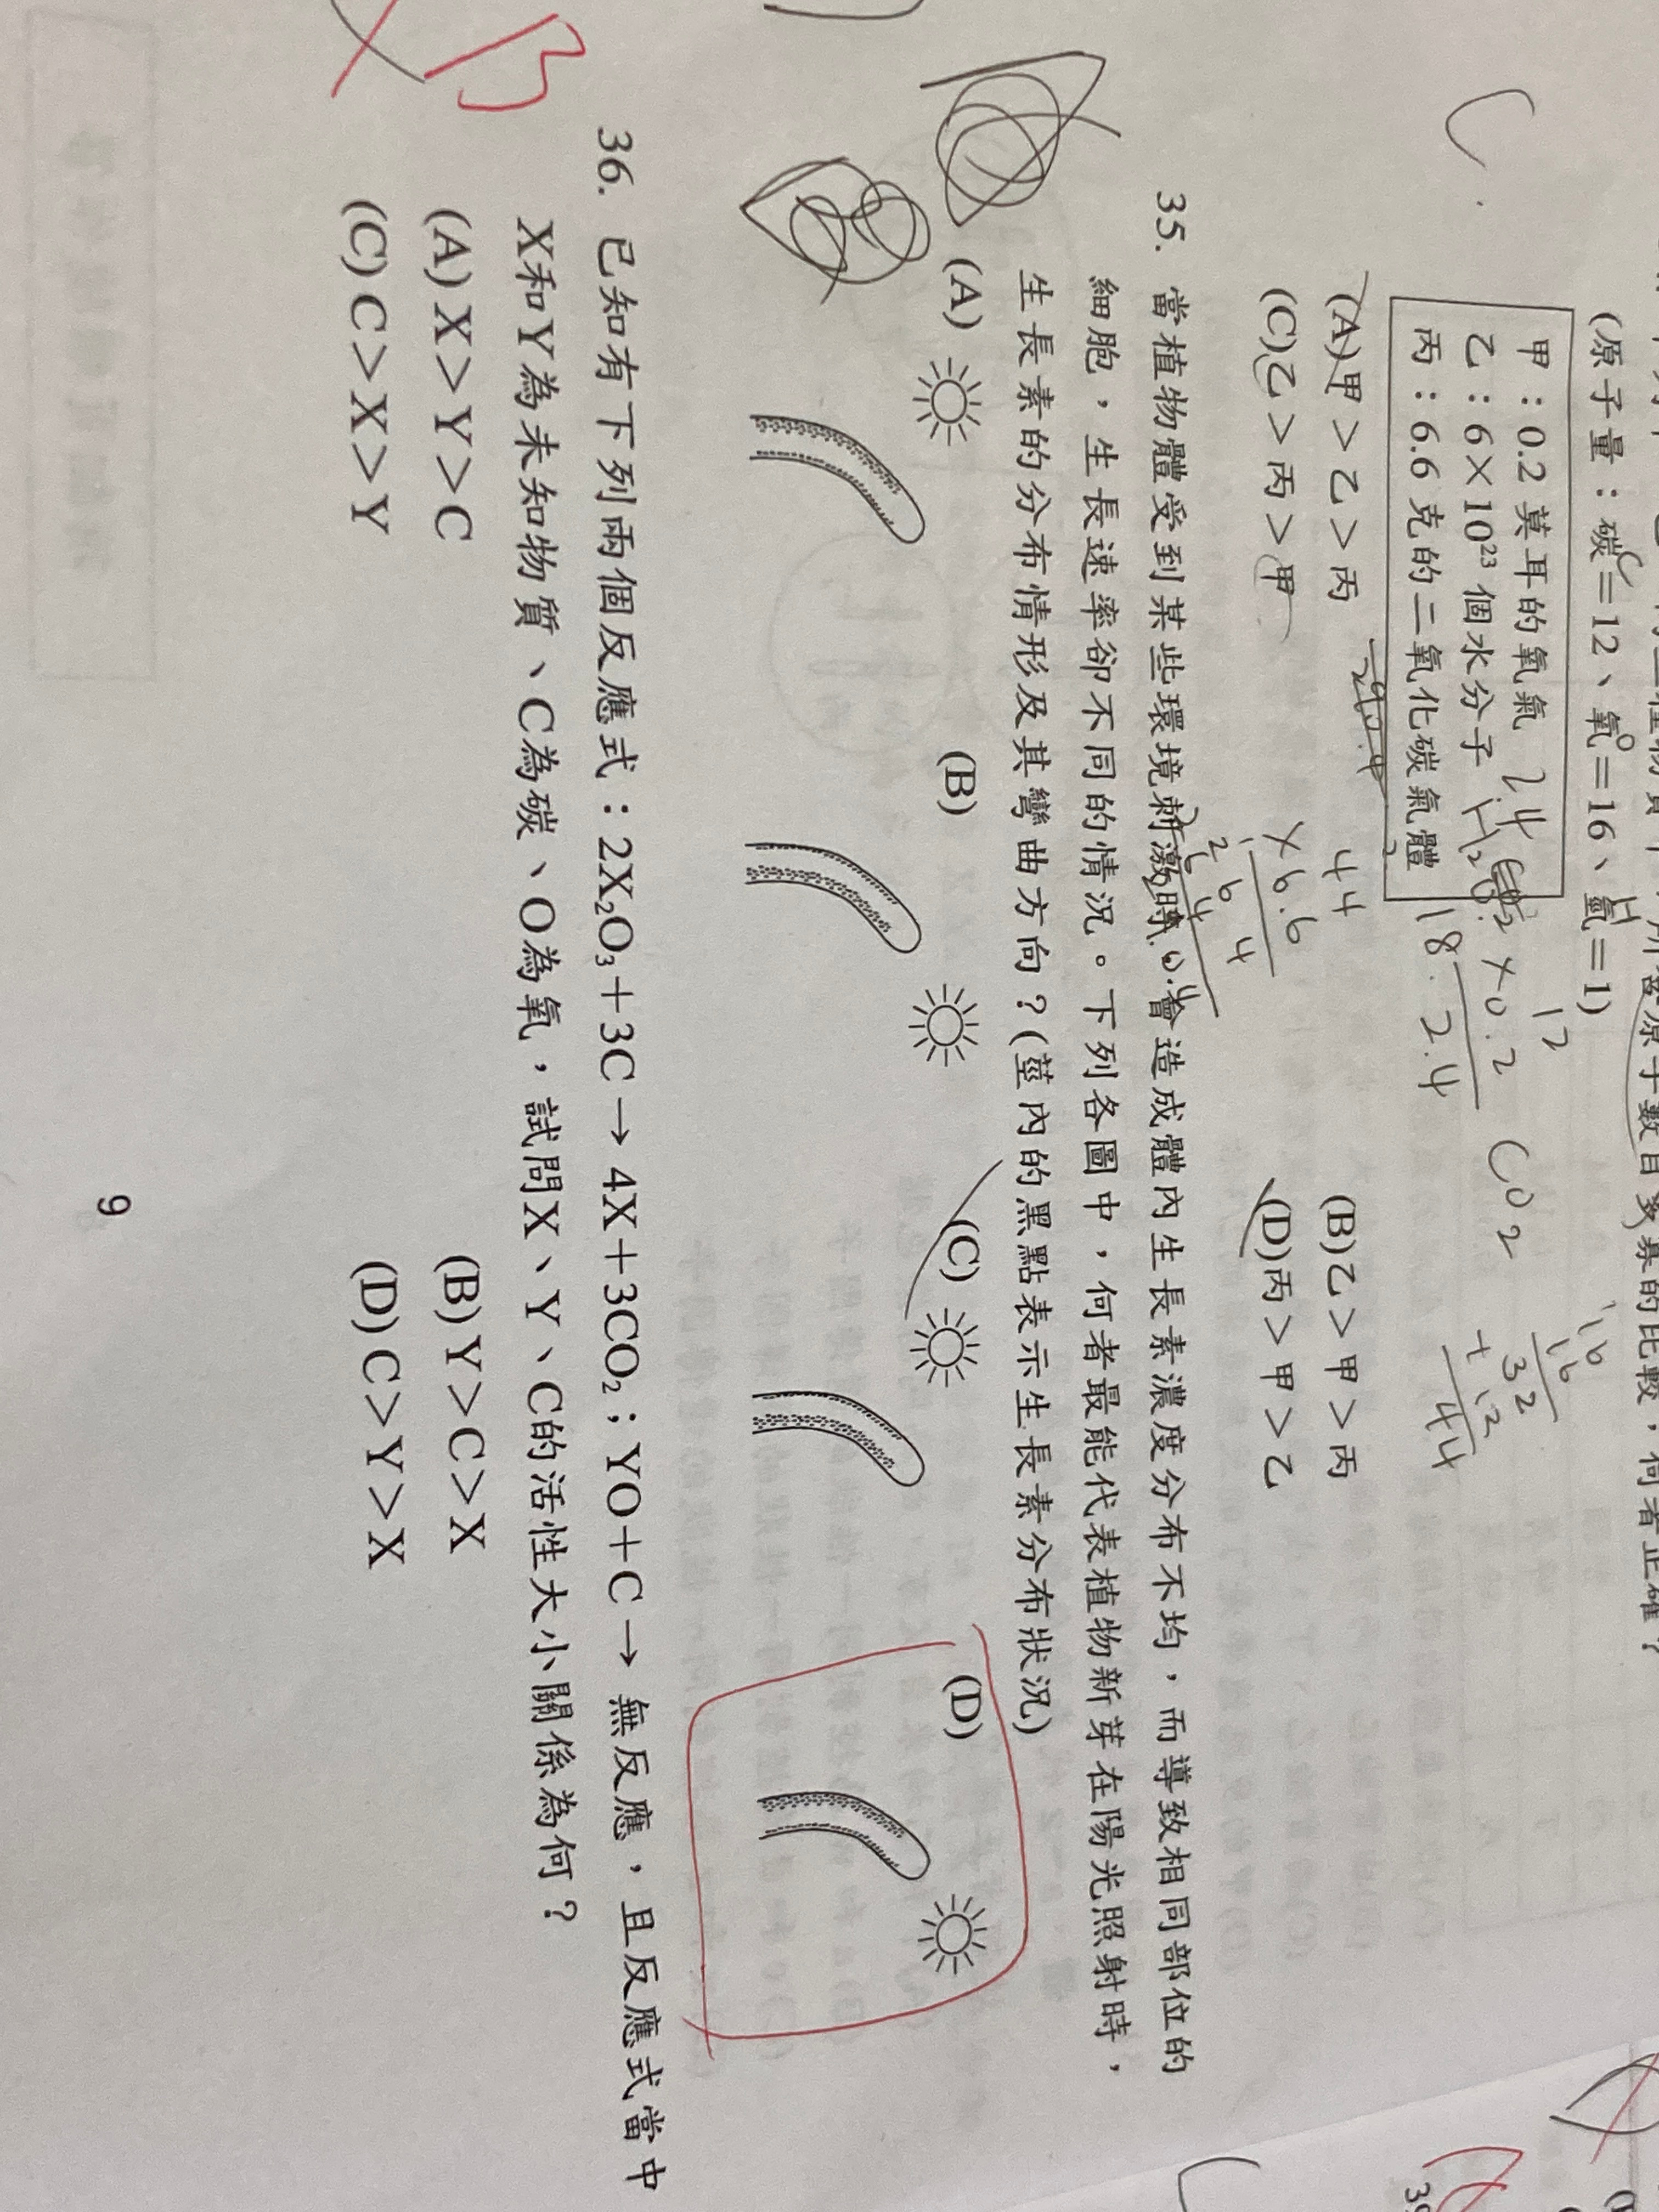 (原子量：碳＝12、氧＝16、氫＝1)
C
O
H
甲：0.2 莫耳的氧氣
乙：6×10²³ 個水分子
丙：6.6 克的二氧化碳氣體
(A)甲＞乙＞丙
(B)乙＞甲＞丙
(C)乙＞丙＞甲
(D)丙＞甲＞乙
C
12
×0.2
2.4
18
CO₂
16
16
32
+12
44
44
×6.6
264
35. 當植物體受到某些環境刺激時，會造成體內生長素濃度分布不均，而導致相同部位的
細胞，生長速率卻不同的情況。下列各圖中，何者最能代表植物新芽在陽光照射時，
生長素的分布情形及其彎曲方向？(莖內的黑點表示生長素分布狀況)
(A)
(B)
(C)
(D)
B
36. 已知有下列兩個反應式：2X₂O₃＋3C → 4X＋3CO₂；YO＋C → 無反應，且反應式當中
X和Y為未知物質、C為碳、O為氧，試問X、Y、C的活性大小關係為何？
(A) X＞Y＞C
(B) Y＞C＞X
(C) C＞X＞Y
(D) C＞Y＞X
9